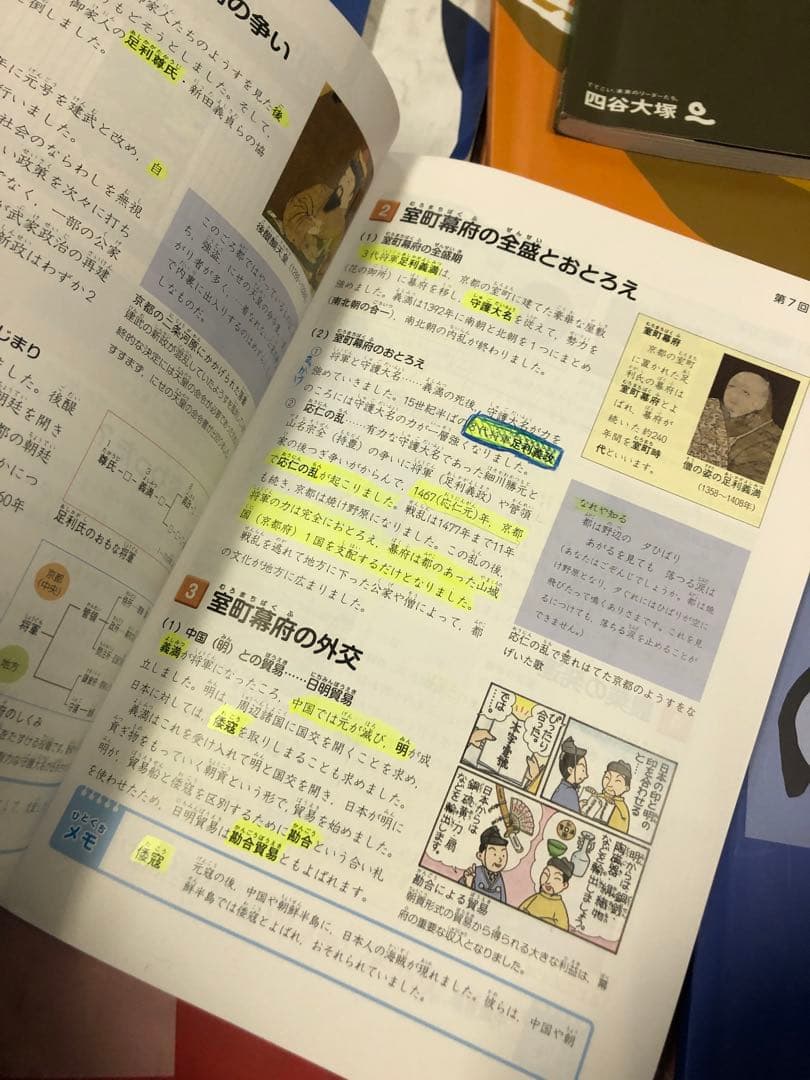 の争い
御家人たちのようすを見た後
もどそうとしました。そして、
御家人の足利尊氏・新田義貞らの協
倒しました。
年に元号を建武と改め、自
行いました。
社会のならわしを無視
い政策を次々に打ち
なく、一部の公家
武家政治の再建
新政はわずか2
後醍醐天皇
このごろ都ではやっているもの
しなものだ。
京都の二条河原にかかげられた落書
じまり
ました。後醍
朝廷を開き
都の朝廷
かにつ
60年
尊氏
義満
足利氏のおもな将軍
京都
(中央)
将軍
管領
地方
のしくみ
四谷大塚
第7回
2 室町幕府の全盛とおとろえ
(1) 室町幕府の全盛期
3代将軍足利義満は、京都の室町に建てた豪華な屋敷
(花の御所)に幕府を移し、守護大名を従えて、勢力を
強めました。義満は1392年に南朝と北朝を1つにまとめ
(南北朝の合一)、南北朝の内乱が終わりました。
(2) 室町幕府のおとろえ
① 将軍と守護大名……義満の死後、守護大名が力を
強めていきました。15世紀半ばの8代将軍足利義政
のころには守護大名の力が一層強くなりました。
② 応仁の乱……有力な守護大名であった細川勝元と
山名宗全(持豊)の争いに将軍(足利義政)や管領
家の後つぎ争いがからんで、1467(応仁元)年、京都
で応仁の乱が起こりました。戦乱は1477年まで11年
も続き、京都は焼け野原になりました。この乱の後、
将軍の力は完全におとろえ、幕府は都のあった山城
国(京都府)1国を支配するだけとなりました。
戦乱を逃れて地方に下った公家や僧によって、都
の文化が地方に広まりました。
室町幕府
京都の室町
に置かれた足
利氏の幕府は
室町幕府とよ
ばれ、幕府が
続いた約240
年間を室町時
代といいます。
僧の姿の足利義満
(1358〜1408年)
なれや知る
都は野辺の 夕ひばり
あがるを見ても 落つる涙は
(あなたはごぞんじでしょうか。都は焼
け野原となり、夕ぐれにはひばりが空に
飛びたって鳴くありさまです。これを見
るにつけても、落ちる涙を止めることが
できません。)
応仁の乱で荒れはてた京都のようすをな
げいた歌
3 室町幕府の外交
(1) 中国(明)との貿易……日明貿易
義満が将軍になったころ、中国では元が滅び、明が成
立しました。明は、周辺諸国に国交を開くことを求め、
日本に対しては、倭寇を取りしまることも求めました。
義満はこれを受け入れて明と国交を開き、日本が明に
貢ぎ物をもっていく朝貢という形で、貿易を始めました。
明が、貿易船と倭寇を区別するために勘合という合い札
を使わせたため、日明貿易は勘合貿易ともよばれます。
日本の印と明の
印を合わせる
と…
ぴったり
合った。
では…
日本からは
銅・硫黄・刀・扇
などを輸出し
明からは銅銭・
陶磁器・絹織物
などを輸出しました
勘合による貿易
朝貢形式の貿易から得られる大きな利益は、幕
府の重要な収入となりました。
ひとくち
メモ
倭寇
元寇の後、中国や朝鮮半島に、日本人の海賊が現れました。彼らは、中国や朝
鮮半島では倭寇とよばれ、おそれられていました。